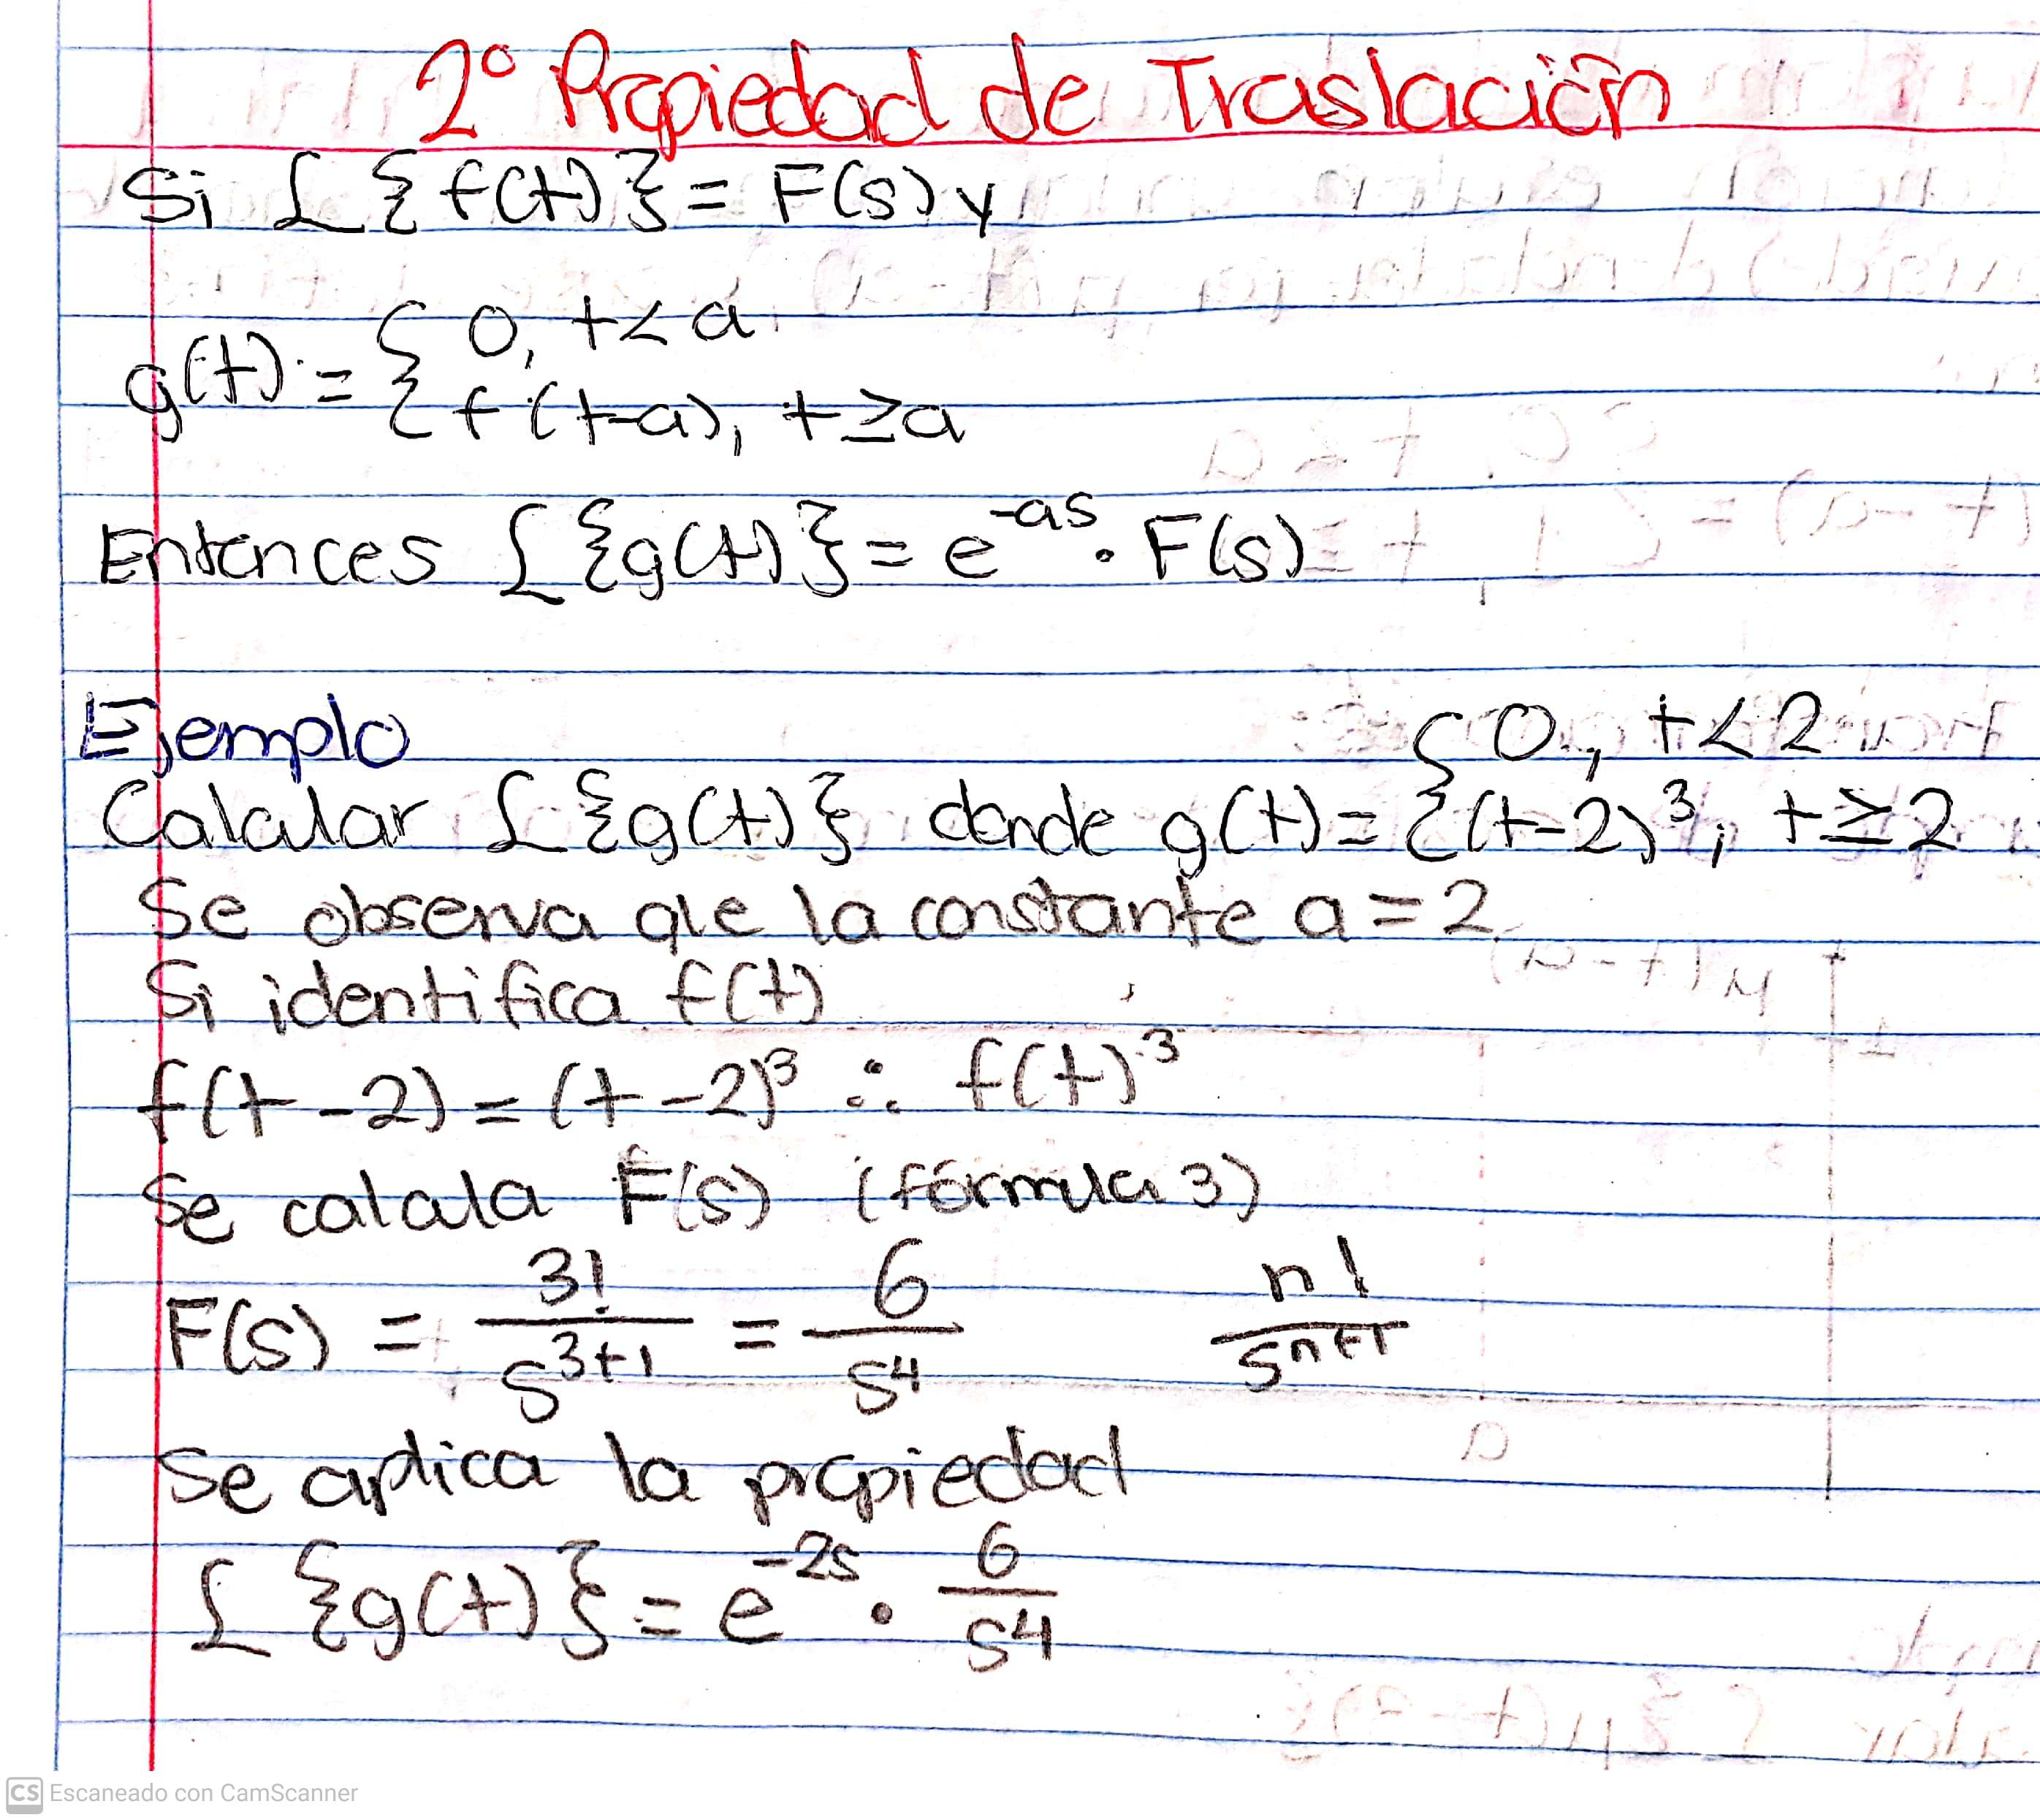 2° Propiedad de Traslación
Si ℒ {f(t)} = F(s) y
g(t) = { 0, t<a
{ f(t-a), t≥a
Entonces ℒ {g(t)} = e^-as · F(s)
Ejemplo
Calcular ℒ {g(t)} donde g(t) = { 0, t<2
{ (t-2)^3, t≥2
Se observa que la constante a = 2
Si identifica f(t)
f(t-2) = (t-2)^3 ∴ f(t)^3
Se calcula F(s) (fórmula 3)
F(s) = 3!/s^3+1 = 6/s^4 n!/s^n+1
Se aplica la propiedad
ℒ {g(t)} = e^-2s · 6/s^4
CS Escaneado con CamScanner